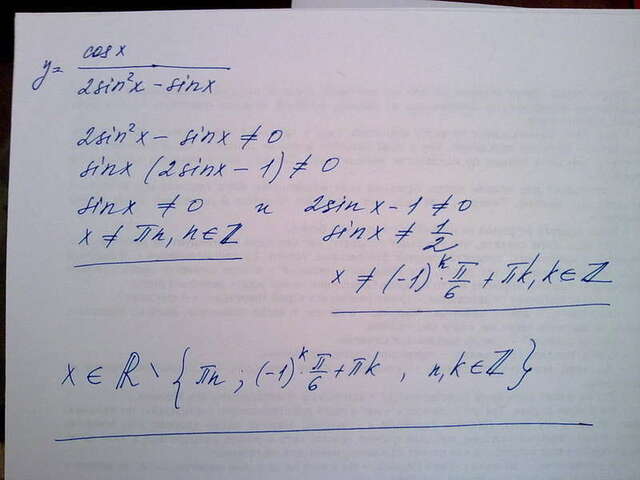 y = cos x / (2sin²x - sin x)
2sin²x - sin x ≠ 0
sin x (2sin x - 1) ≠ 0
sin x ≠ 0 и 2sin x - 1 ≠ 0
x ≠ πn, n ∈ ℤ sin x ≠ 1/2
x ≠ (-1)^k · π/6 + πk, k ∈ ℤ
x ∈ ℝ \ { πn ; (-1)^k · π/6 + πk , n, k ∈ ℤ }